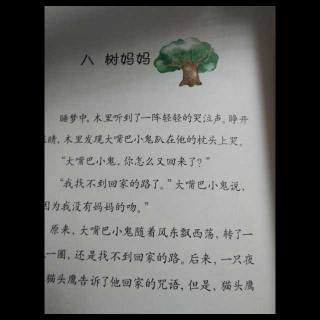 八 树妈妈
睡梦中，木里听到了一阵轻轻的哭泣声。睁开
眼睛，木里发现大嘴巴小鬼趴在他的枕头上哭。
“大嘴巴小鬼，你怎么又回来了？”
“我找不到回家的路了。”大嘴巴小鬼说，
因为我没有妈妈的吻。”
原来，大嘴巴小鬼随着风东飘西荡，转了一
一圈，还是找不到回家的路。后来，一只夜
猫头鹰告诉了他回家的咒语，但是，猫头鹰